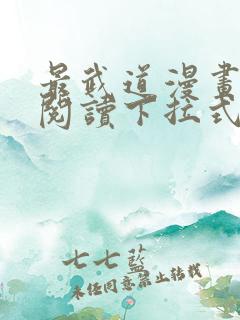 最武道漫畫
閱讀下拉式
七七藍
未經同意禁止轉載